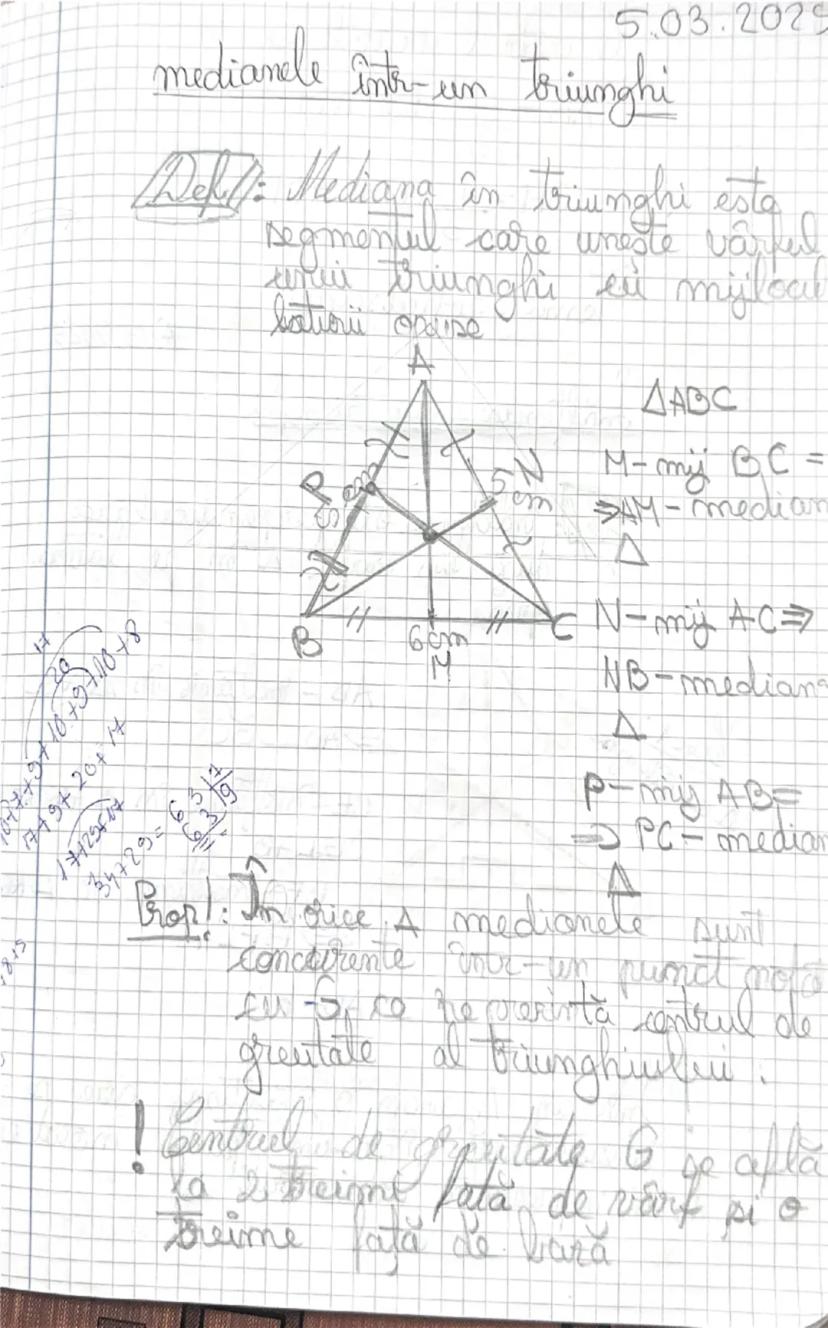 5.03.202
medianele într-un triunghi
Def!: Mediana în triunghi este
segmentul care unește vârful
unui triunghi cu mijlocul
laturii opuse
A
ΔABC
M-mij BC =
⇒AM-median
Δ
P
5 cm
N
5 cm
B
6 cm
M
C
N-mij AC⇒
NB-median
Δ
P-mij AB=
⇒ PC-median
Δ
17
20
+9+10+9+10+8
17+9+20+17
17+29+17
34+29=63|7
63|9
Prop!: În orice Δ medianele sunt
concurente într-un punct notat
cu G, ce reprezintă centrul de
greutate al triunghiului.
! Centrul de greutate G se află
la 2 treimi față de vârf și o
treime față de bază